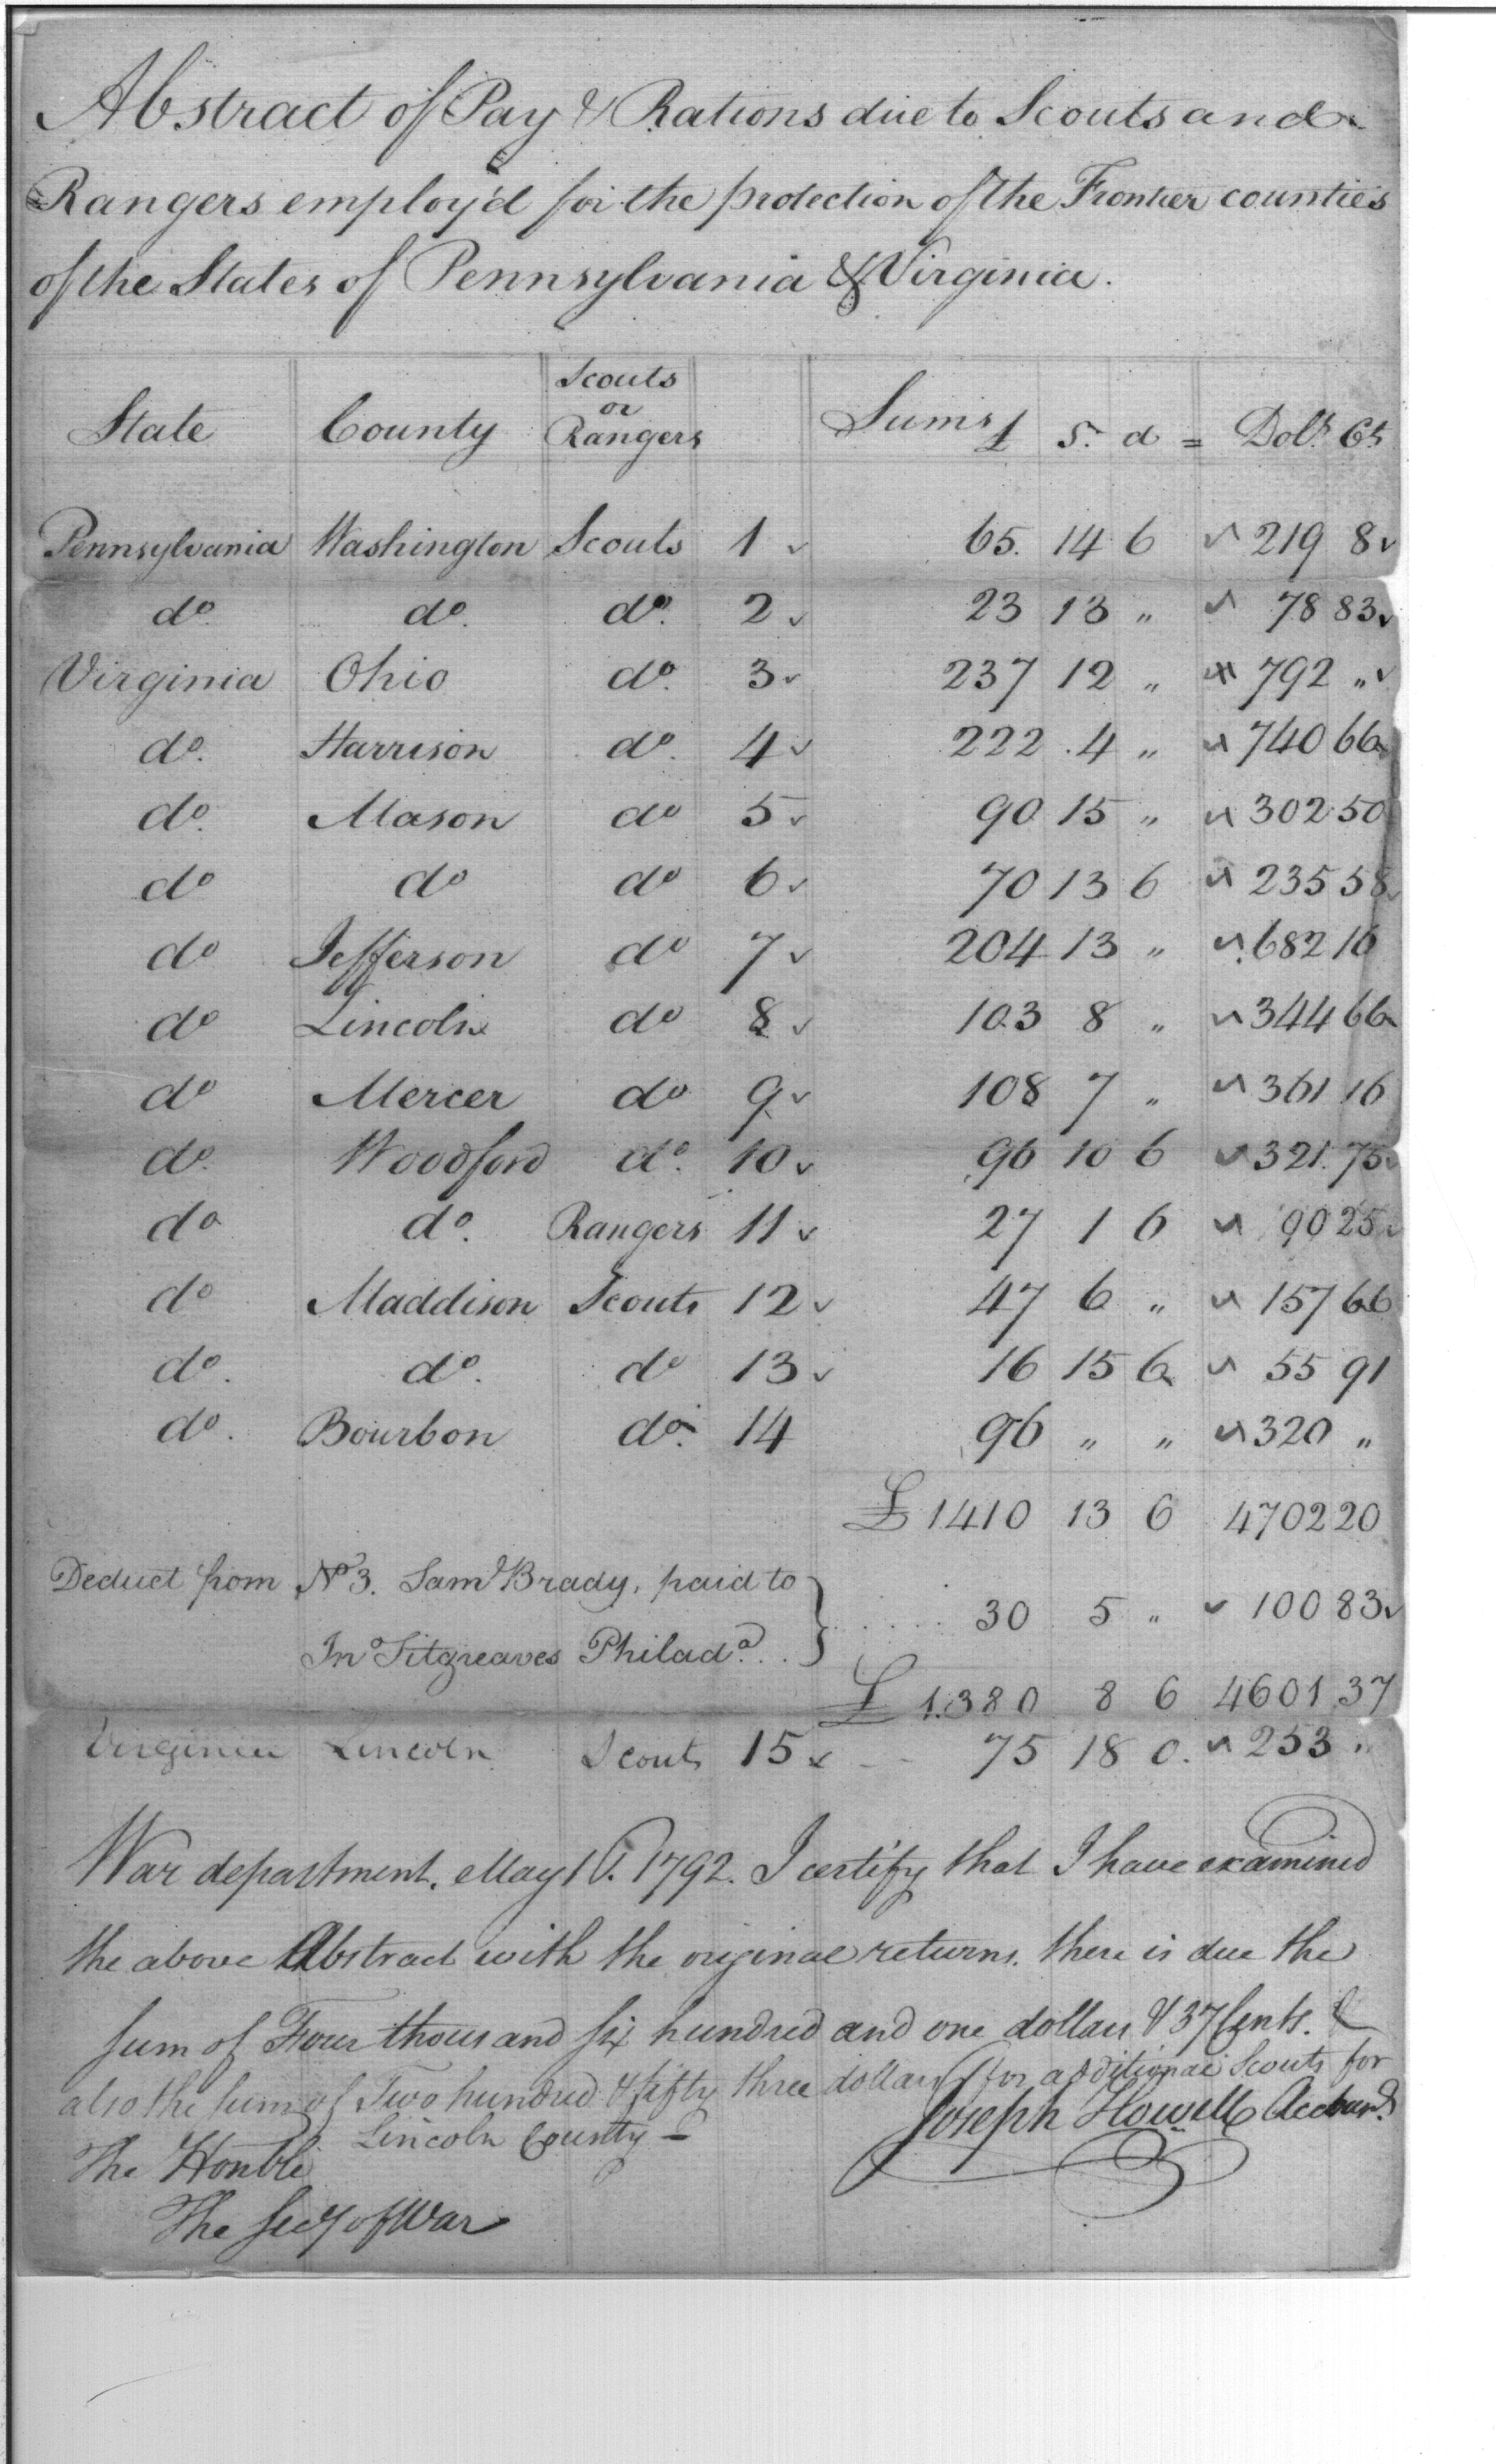 Abstract of Pay & Rations due to Scouts and
Rangers employ'd for the protection of the Frontier counties
of the States of Pennsylvania & Virginia.
State County Scouts or Rangers Sums £ S. d = Dolls Cts
Pennsylvania Washington Scouts 1 65. 14 6 219 8
do do. do. 2 23 13 " 78 83
Virginia Ohio do. 3 237 12 " 792 "
do. Harrison do. 4 222 .4 " 740 66
do. Mason do 5 90 15 " 302 50
do do do 6 70 13 6 235 58
do Jefferson do 7 204 13 " 682 16
do Lincoln do 8 103 8 " 344 66
do Mercer do 9 108 7 " 361 16
do. Woodford do. 10 96 10 6 321. 75
do do. Rangers 11 27 1 6 90 25
do Maddison Scouts 12 47 6 " 157 66
do. do. do 13 16 15 6 55 91
do. Bourbon do. 14 96 " " 320 "
£ 1410 13 6 4702 20
Deduct from No 3. Saml Brady, paid to
30 5 " 100 83
Jno Fitzgreaves Philada.
£ 1.380 8 6 4601 37
Virginia Lincoln Scouts 15 75 18 0. 253 "
War department. May 16. 1792. I certify that I have examined
the above Abstract with the original returns. there is due the
sum of Four thousand six hundred and one dollars & 37 Cents. &
also the sum of Two hundred & fifty three dollars for additional Scouts for
Lincoln County
Joseph Howell Accountt
The Honble
The Secy of War